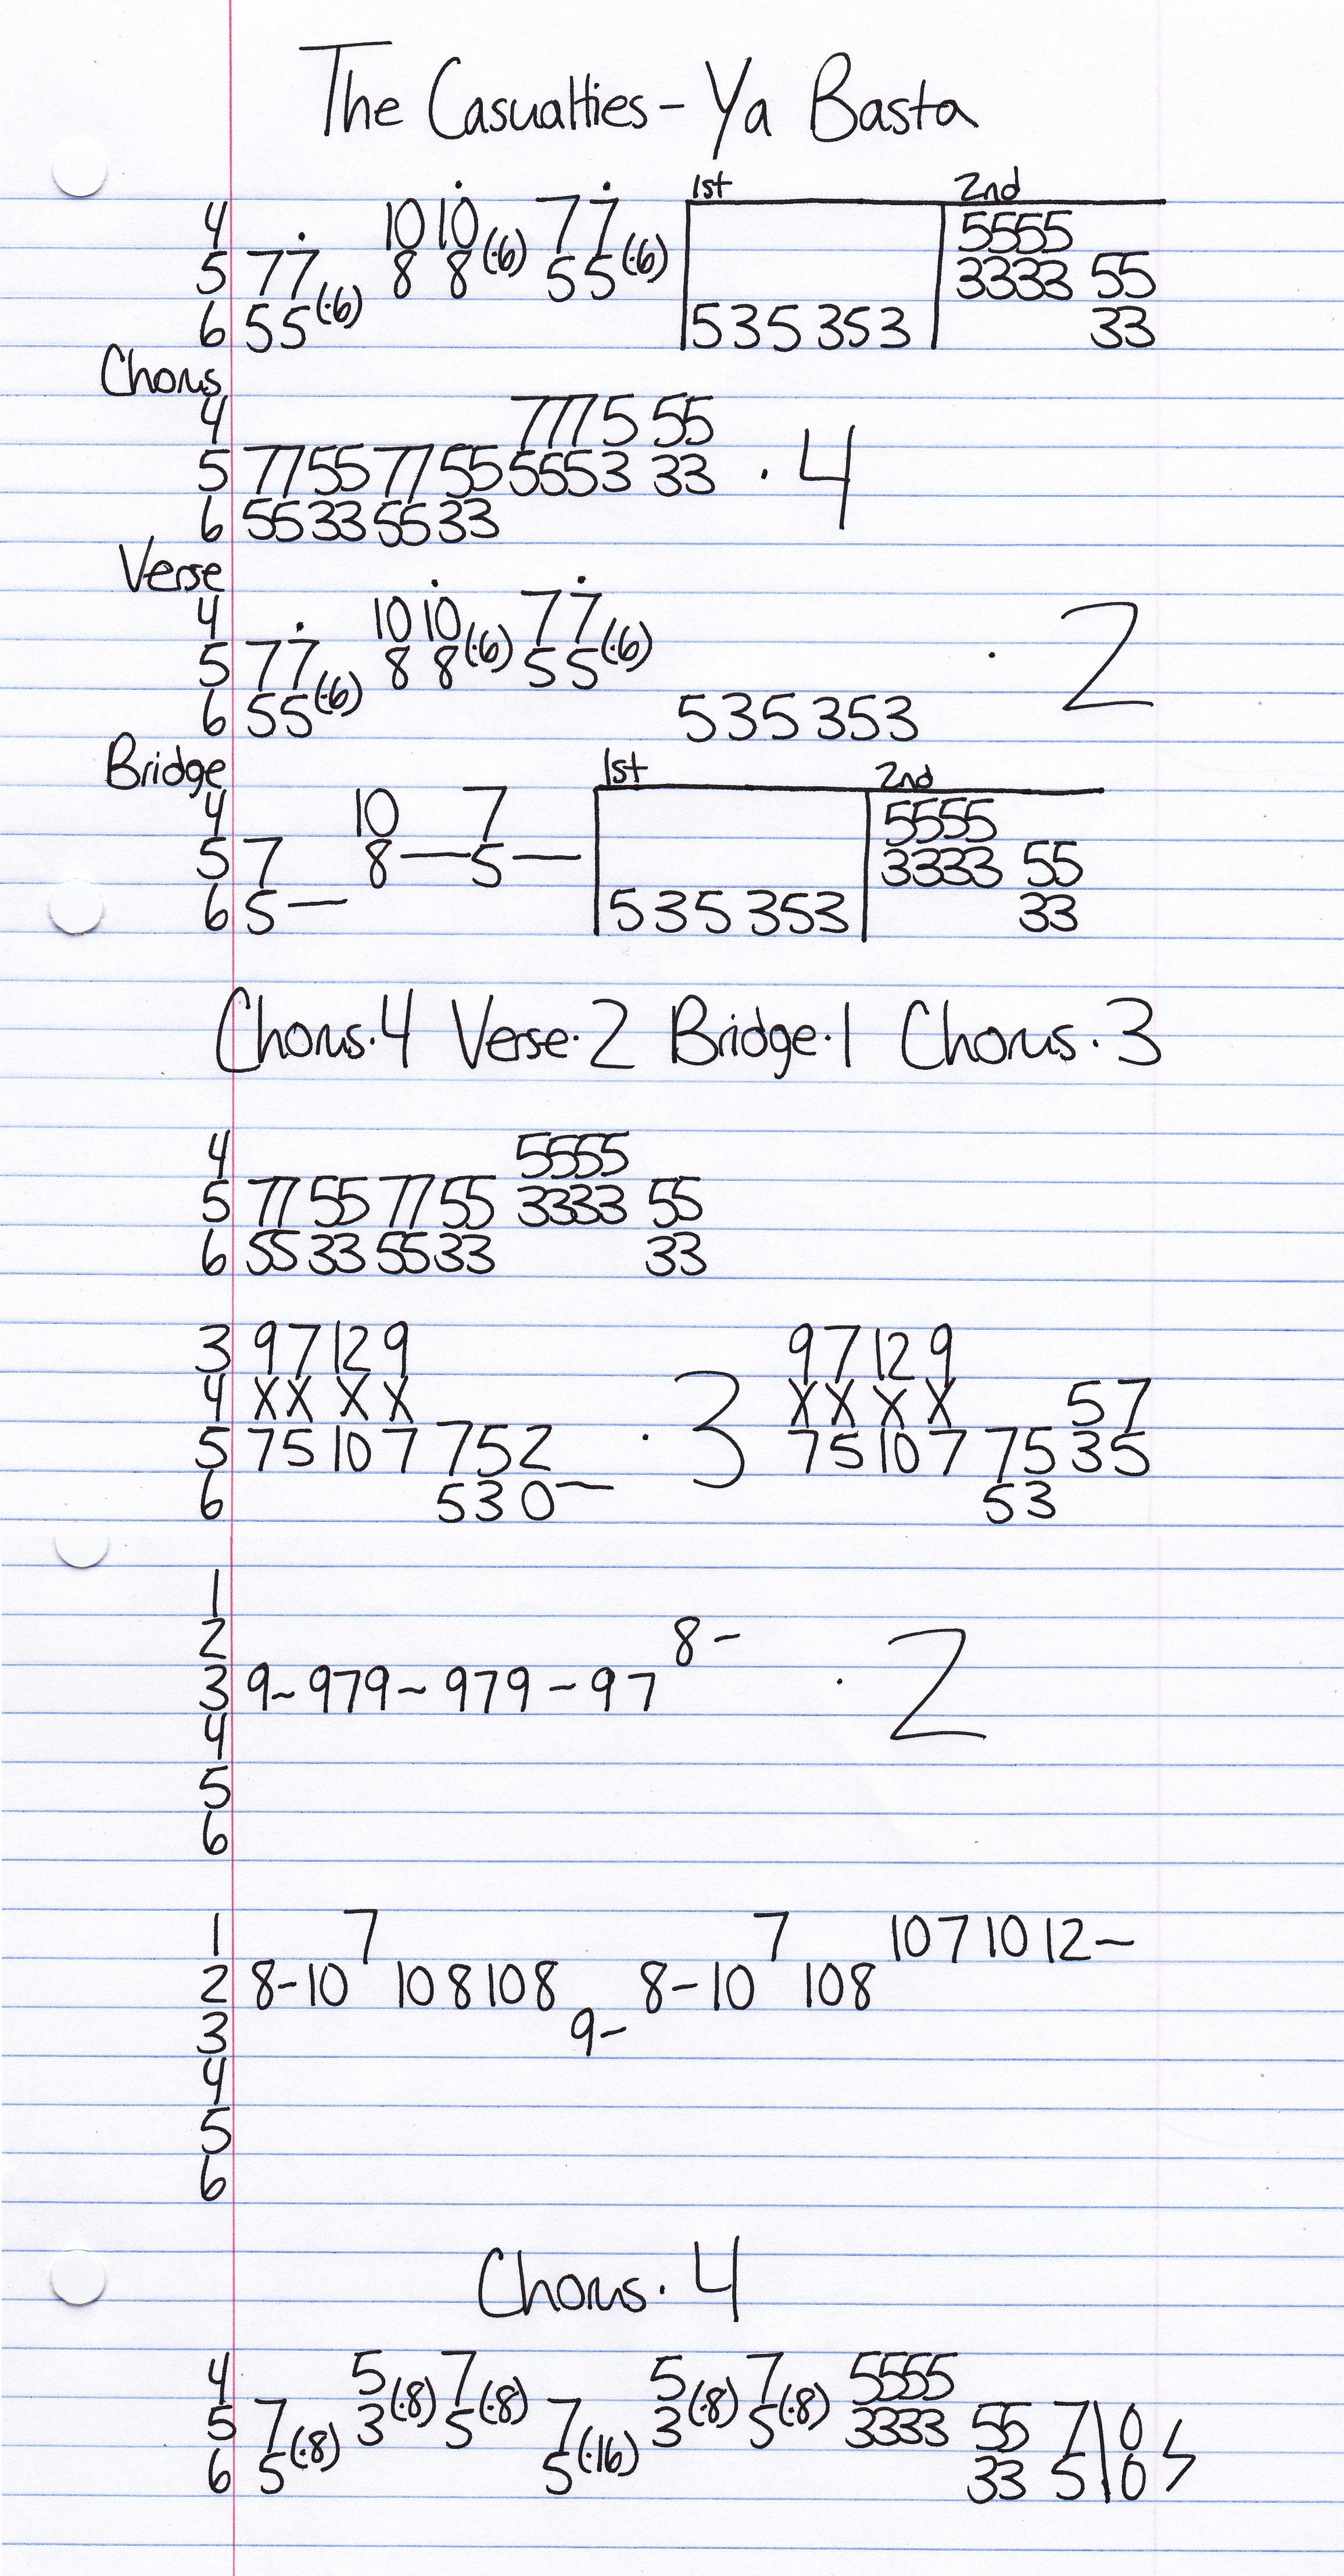 The Casualties - Ya Basta
1st 2nd
4 10 10 (·6) 7 7 (·6) 5555
5 77 (·6) 8 8 55 3333 55
6 55 535 353 33
Chorus
4 7775 55
5 77 55 77 55 5553 33 · 4
6 55 33 55 33
Verse
4 10 10 (·6) 7 7 (·6)
5 77 (·6) 8 8 5 5 · 2
6 55 535 353
Bridge
1st 2nd
4 10 7 5555
5 7 8 — 5 — 3333 55
6 5 — 535 353 33
Chorus·4 Verse·2 Bridge·1 Chorus·3
4 5555
5 77 55 77 55 3333 55
6 55 33 55 33 33
3 9 7 12 9 9 7 12 9
4 X X X X · 3 X X X X 5 7
5 7 5 10 7 7 5 2 7 5 10 7 7 5 3 5
6 5 3 0 — 5 3
1
2 8 -
3 9 - 979 - 979 - 97 · 2
4
5
6
1 7 7 10 7 10 12 —
2 8 - 10 10 8 10 8 8 - 10 10 8
3 9 -
4
5
6
Chorus · 4
4 5 (·8) 7 (·8) 5 (·8) 7 (·8) 5555
5 7 (·8) 3 5 7 (·16) 3 5 3333 55 7 \ 0
6 5 5 33 5 \ 0